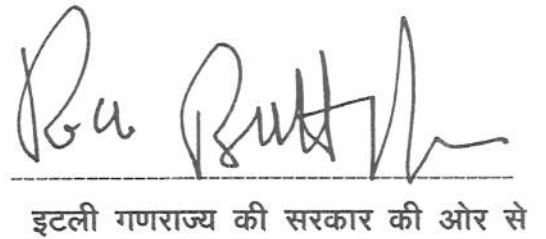 इटली गणराज्य की सरकार की ओर से